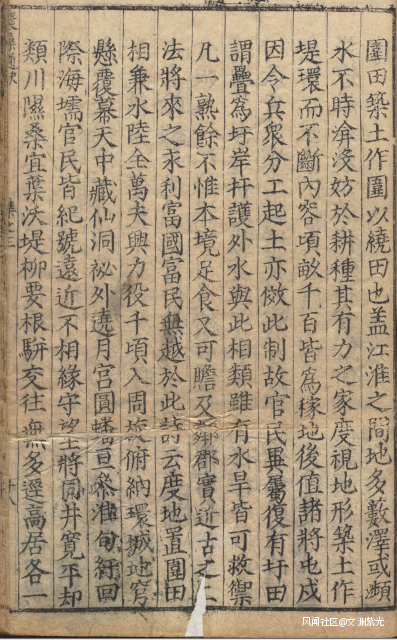 圍田築土作圍以繞田也盖江淮之間地多藪澤或瀕
水不時渰沒妨於耕種其有力之家度視地形築土作
堤環而不斷內容頃畝千百皆為稼地後值諸將屯戍
因令兵衆分工起土亦倣此制故官民異屬復有圩田
謂疊為圩岸扞護外水與此相類雖有水旱皆可救禦
凡一熟餘不惟本境足食又可贍及鄰郡實近古之
法將來之永利富國富民無越於此詩云度地置圍田
相兼水陸全萬夫興力役千頃入周旋俯納環城地穹
懸覆幕天中藏仙洞祕外遶月宮圓蟠亘參淮甸紆回
際海壖官民皆紀號遠近不相緣守望將同井寬平却
類川隰桑宜葉沃堤柳要根駢交往無多逕高居各一
集之三
十八
风闻社区@文渊紫光